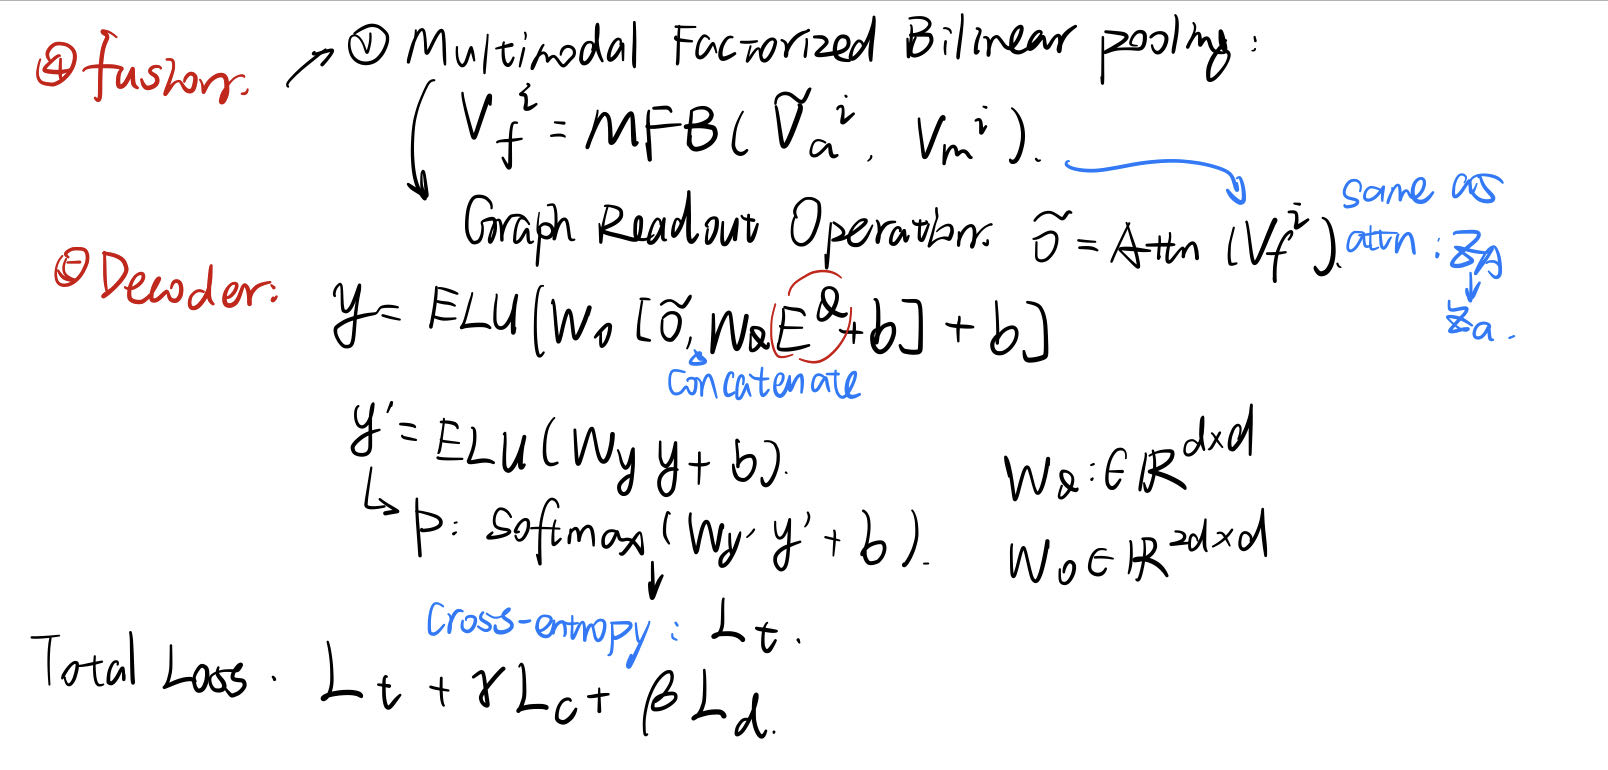 ④ fusion. → ① Multimodal Factorized Bilinear pooling:
V_f^i = MFB(Ṽ_a^i, V_m^i).
Graph Readout Operation. õ = Attn(V_f^i).
same as
attn: Z_A
↓
Z_a.
⑤ Decoder:
y = ELU[W_o [õ, W_Q E^Q + b] + b]
concatenate
y' = ELU(W_y y + b).
p: softmax(W_y' y' + b).
W_Q: ∈ ℝ^{d×d}
W_o ∈ ℝ^{2d×d}
cross-entropy: L_t.
Total Loss. L_t + γL_c + βL_d.